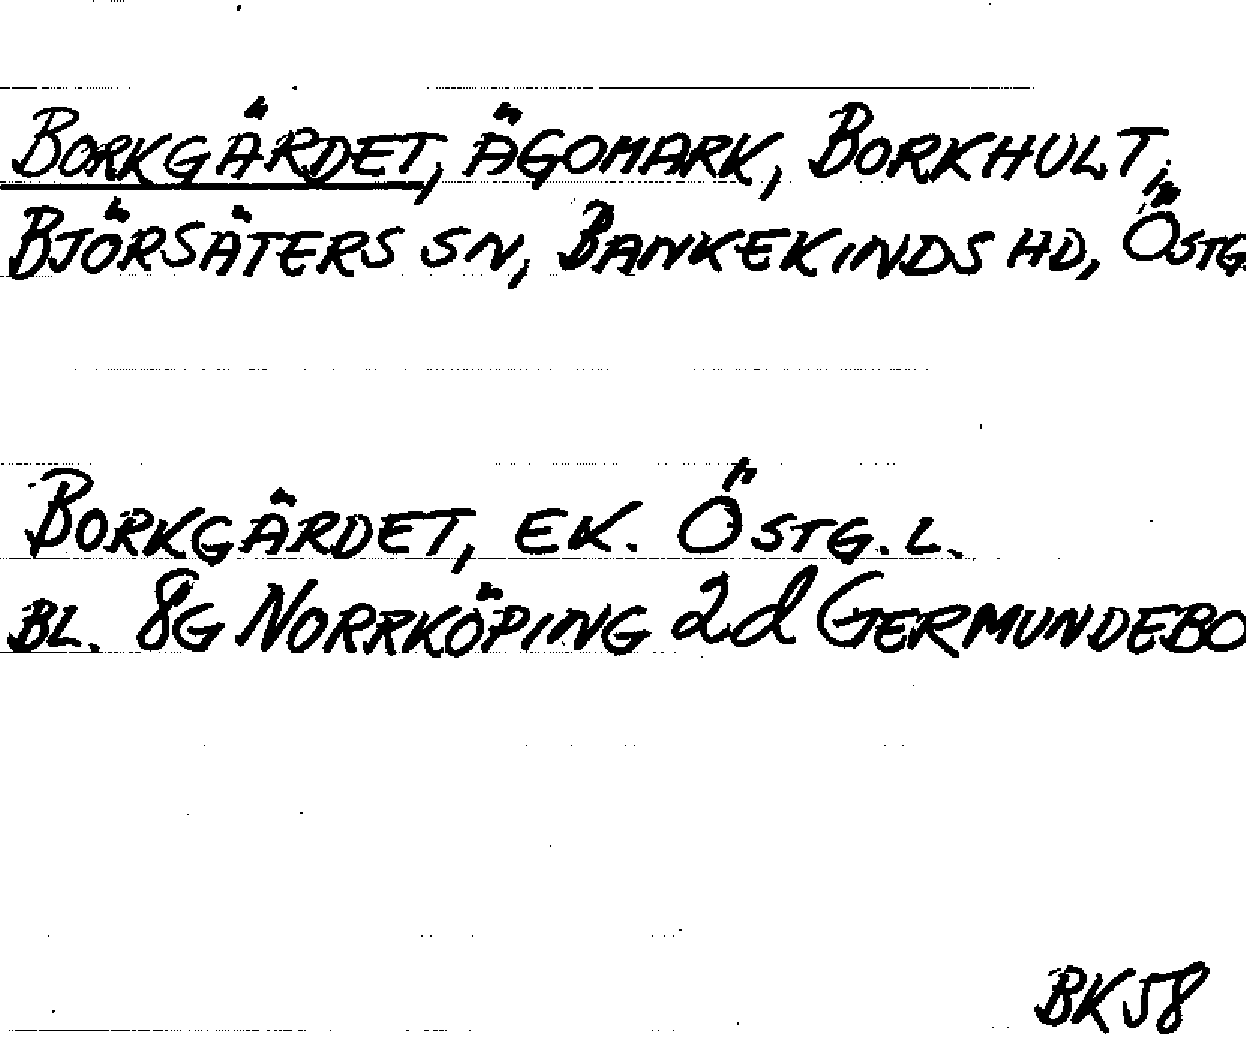 BORKGÄRDET, ÄGOMARK, BORKHULT,
BJÖRSÄTERS SN, BANKEKINDS HD, ÖSTG.
BORKGÄRDET, EK. ÖSTG. L.
BL. 8G NORRKÖPING 2d GERMUNDEBO
BK58